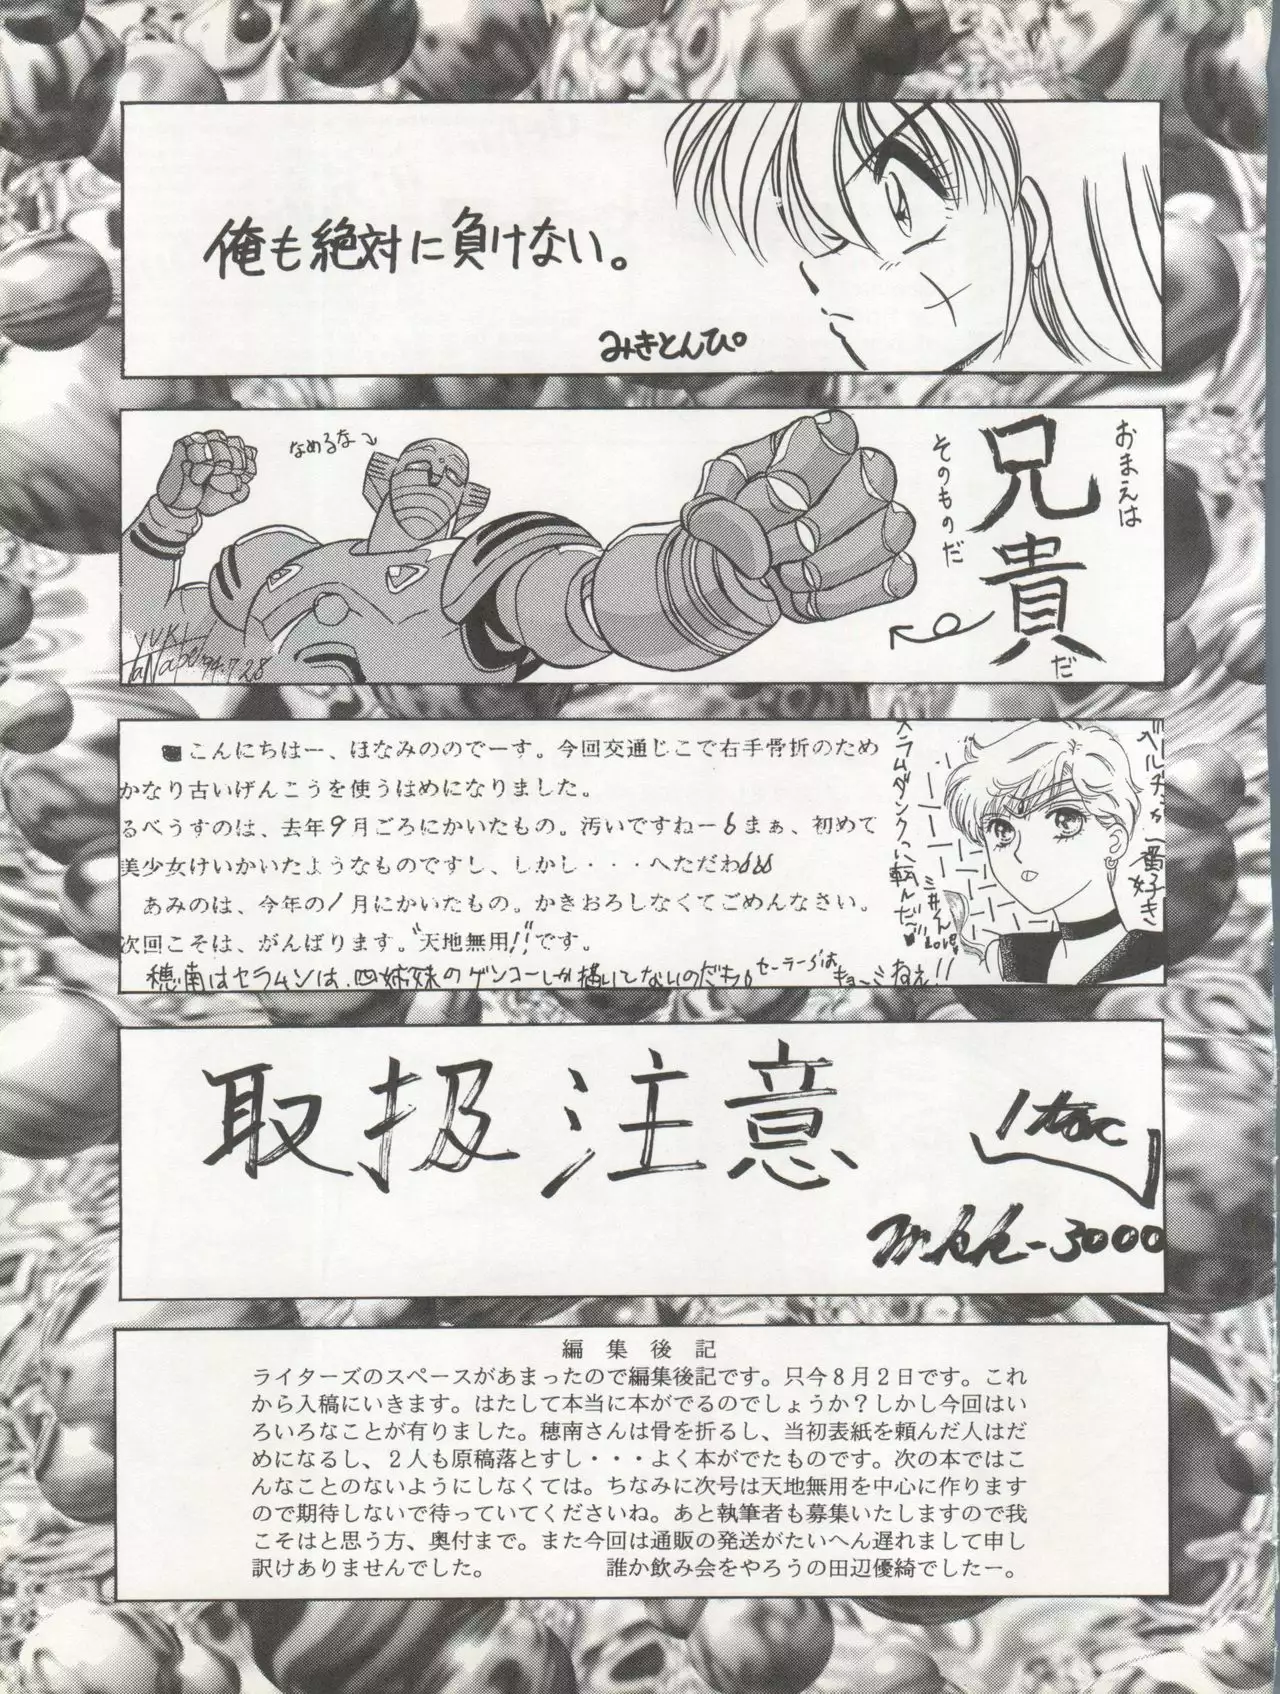 俺も絶対に負けない。
みきとんぴ。
おまえは
兄貴だ
そのものだ
なめるな
YUKI
TaNabe '94.7.28
こんにちはー、ほなみののでーす。今回交通じこで右手骨折のため
かなり古いげんこうを使うはめになりました。
るべうすのは、去年9月ごろにかいたもの。汚いですねーまぁ、初めて
美少女けいかいたようなものですし、しかし・・・へただわ
あみのは、今年の1月にかいたもの。かきおろしなくてごめんなさい。
次回こそは、がんばります。"天地無用!!"です。
穂南はセラムンは、四姉妹のゲンコーしか描いてないのだわ。セーラー5はキョーミねえ!!
ベルチェが一番好き
スラムダンクに転んだ
三井くん
Love
取扱注意
-3000
編集後記
ライターズのスペースがあまったので編集後記です。只今8月2日です。これ
から入稿にいきます。はたして本当に本がでるのでしょうか?しかし今回はい
ろいろなことが有りました。穂南さんは骨を折るし、当初表紙を頼んだ人はだ
めになるし、2人も原稿落とすし・・・よく本がでたものです。次の本ではこ
んなことのないようにしなくては。ちなみに次号は天地無用を中心に作ります
ので期待しないで待っていてくださいね。あと執筆者も募集いたしますので我
こそはと思う方、奥付まで。また今回は通販の発送がたいへん遅れまして申し
訳けありませんでした。 誰か飲み会をやろうの田辺優綺でしたー。